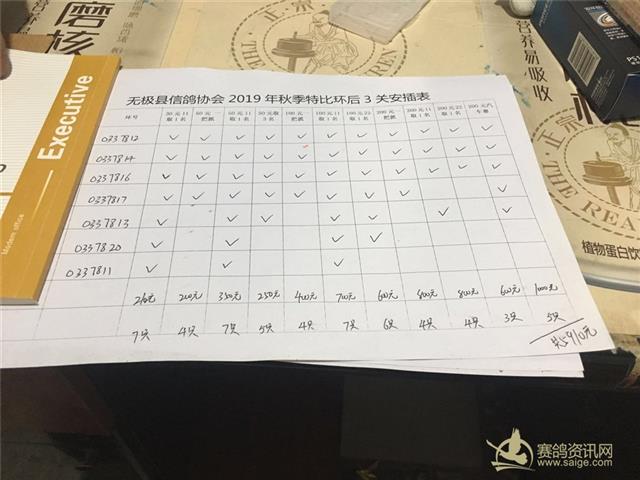 正宗
磨核
营养易吸收
Executive
Modern office
无极县信鸽协会 2019 年秋季特比环后 3 关安插表
环号 30元11取1名 50元一把抓 50元11取1名 50元取3名 100元一把抓 100元11取1名 100元22取1名 200元一把抓 200元11取1名 200元22取1名 200元汽车赛
0337812 ✓ ✓ ✓ ✓ ✓ ✓ ✓ ✓ ✓ ✓ ✓
0337814 ✓ ✓ ✓ ✓ ✓ ✓ ✓ ✓ ✓ ✓ ✓
0337816 ✓ ✓ ✓ ✓ ✓ ✓ ✓ ✓ ✓ ✓ ✓
0337817 ✓ ✓ ✓ ✓ ✓ ✓ ✓ ✓ ✓
0337813 ✓ ✓ ✓ ✓ ✓ ✓ ✓
0337820 ✓ ✓ ✓ ✓
0337811 ✓ ✓ ✓
210元 200元 350元 250元 400元 700元 600元 800元 800元 600元 1000元
7只 4只 7只 5只 4只 7只 6只 4只 4只 3只 5只
共5910元
THE REAL
植物蛋白饮
赛鸽资讯网
www.saige.com